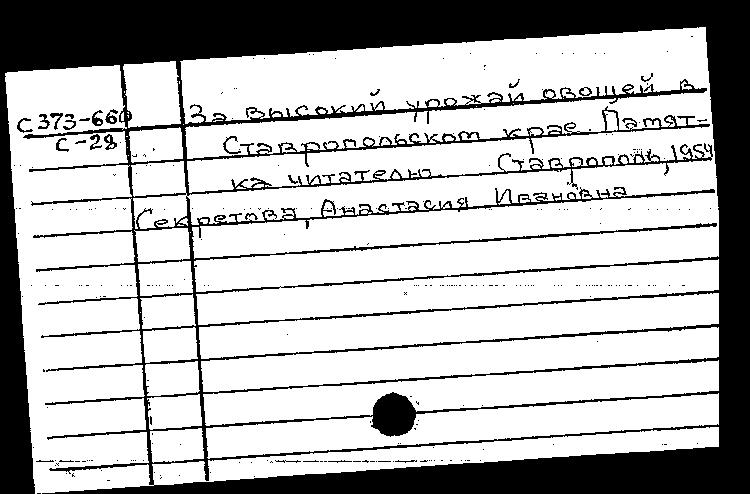 С373-660
С-28
За высокий урожай овощей в
Ставропольском крае. Памят=
ка читателю. Ставрополь, 1954
Секретова, Анастасия Ивановна